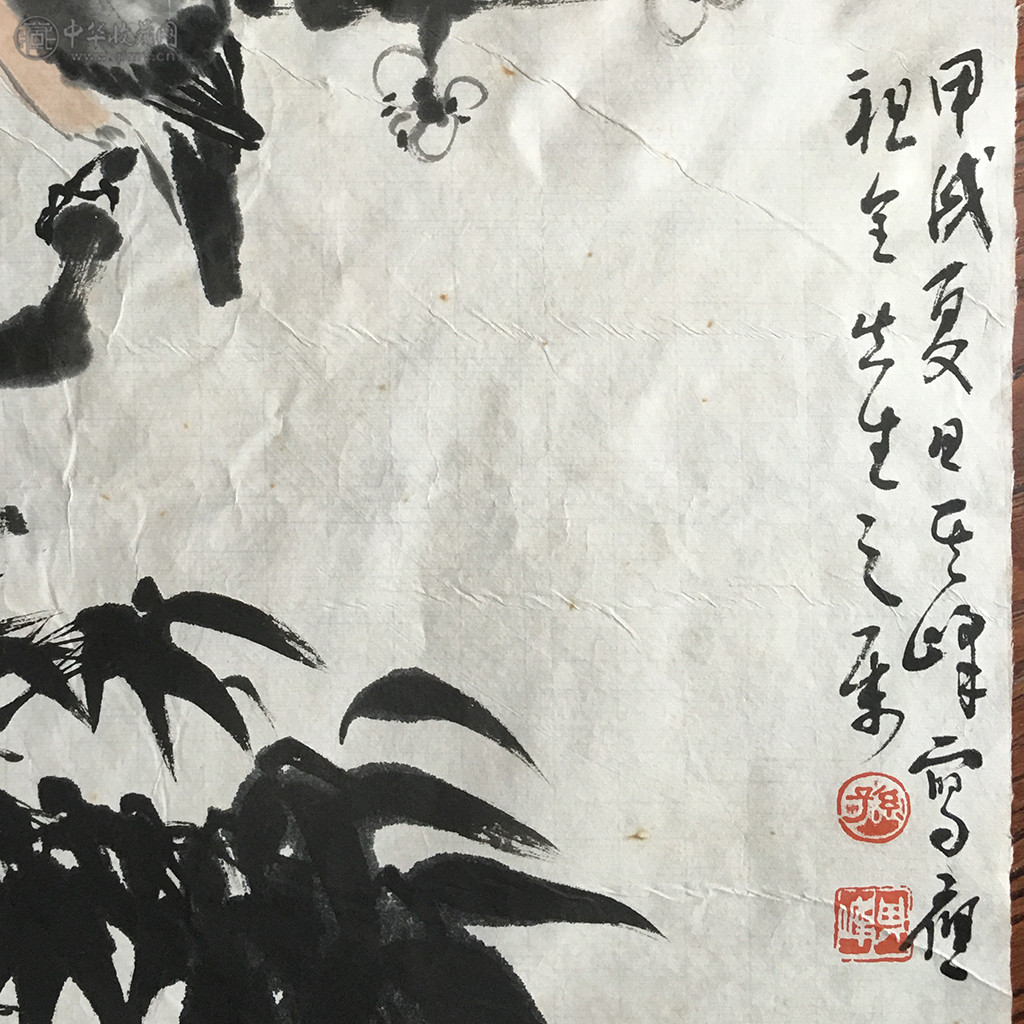 甲戌夏日其峰写应
祖全先生之属
孙
其峰
中华收藏网